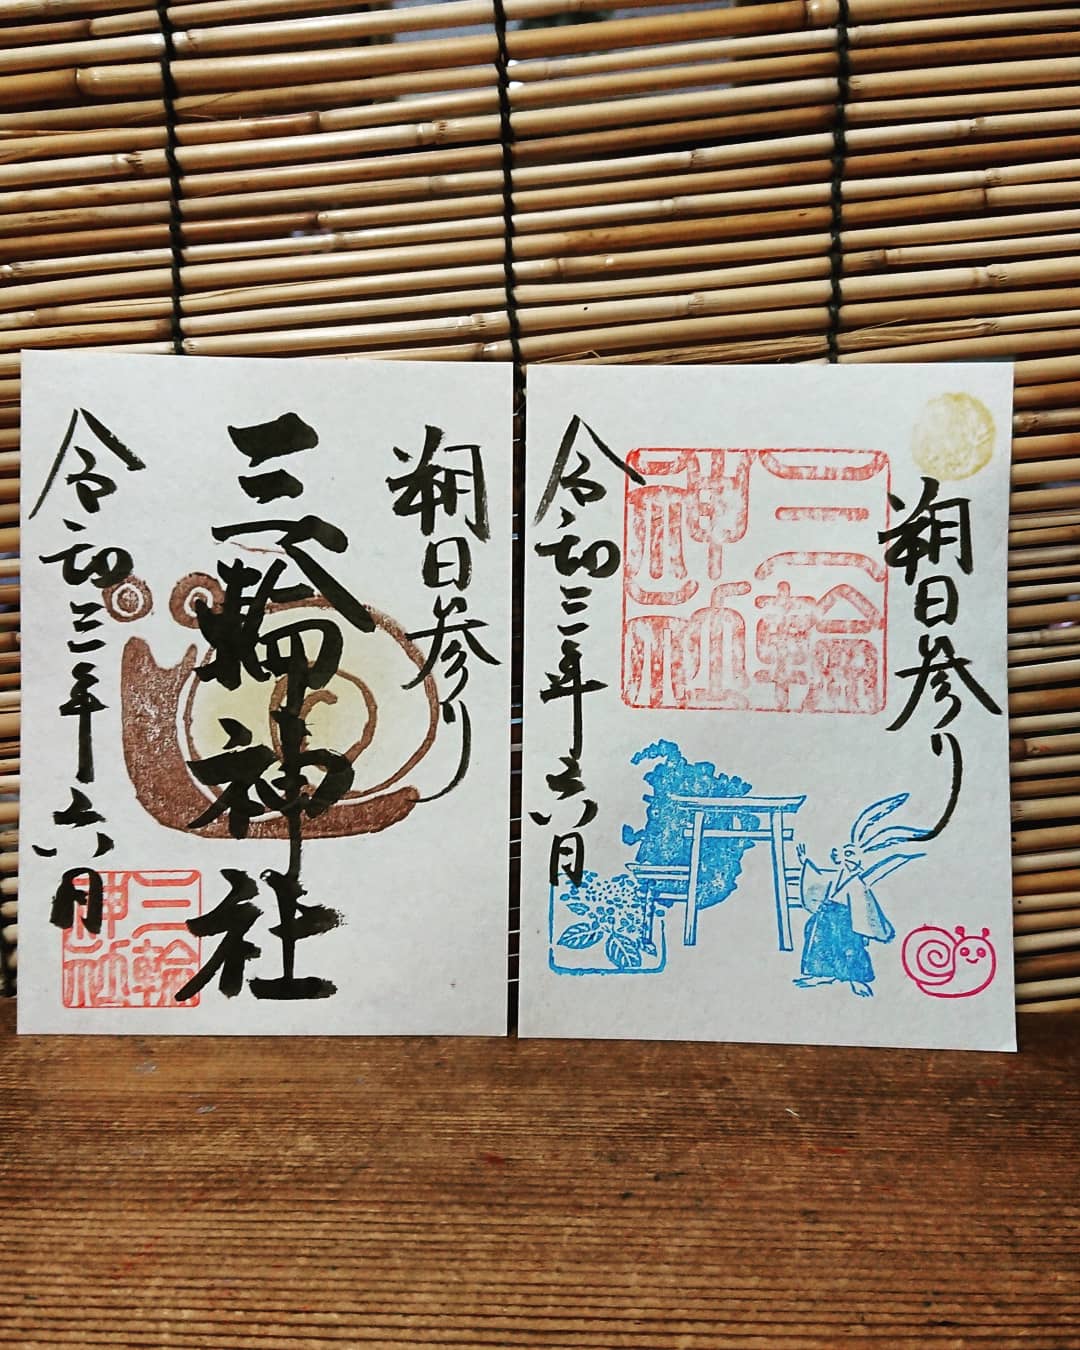 朔日参り
三輪神社
令和三年六月
三輪
神社
朔日参り
三輪
神社
令和三年六月